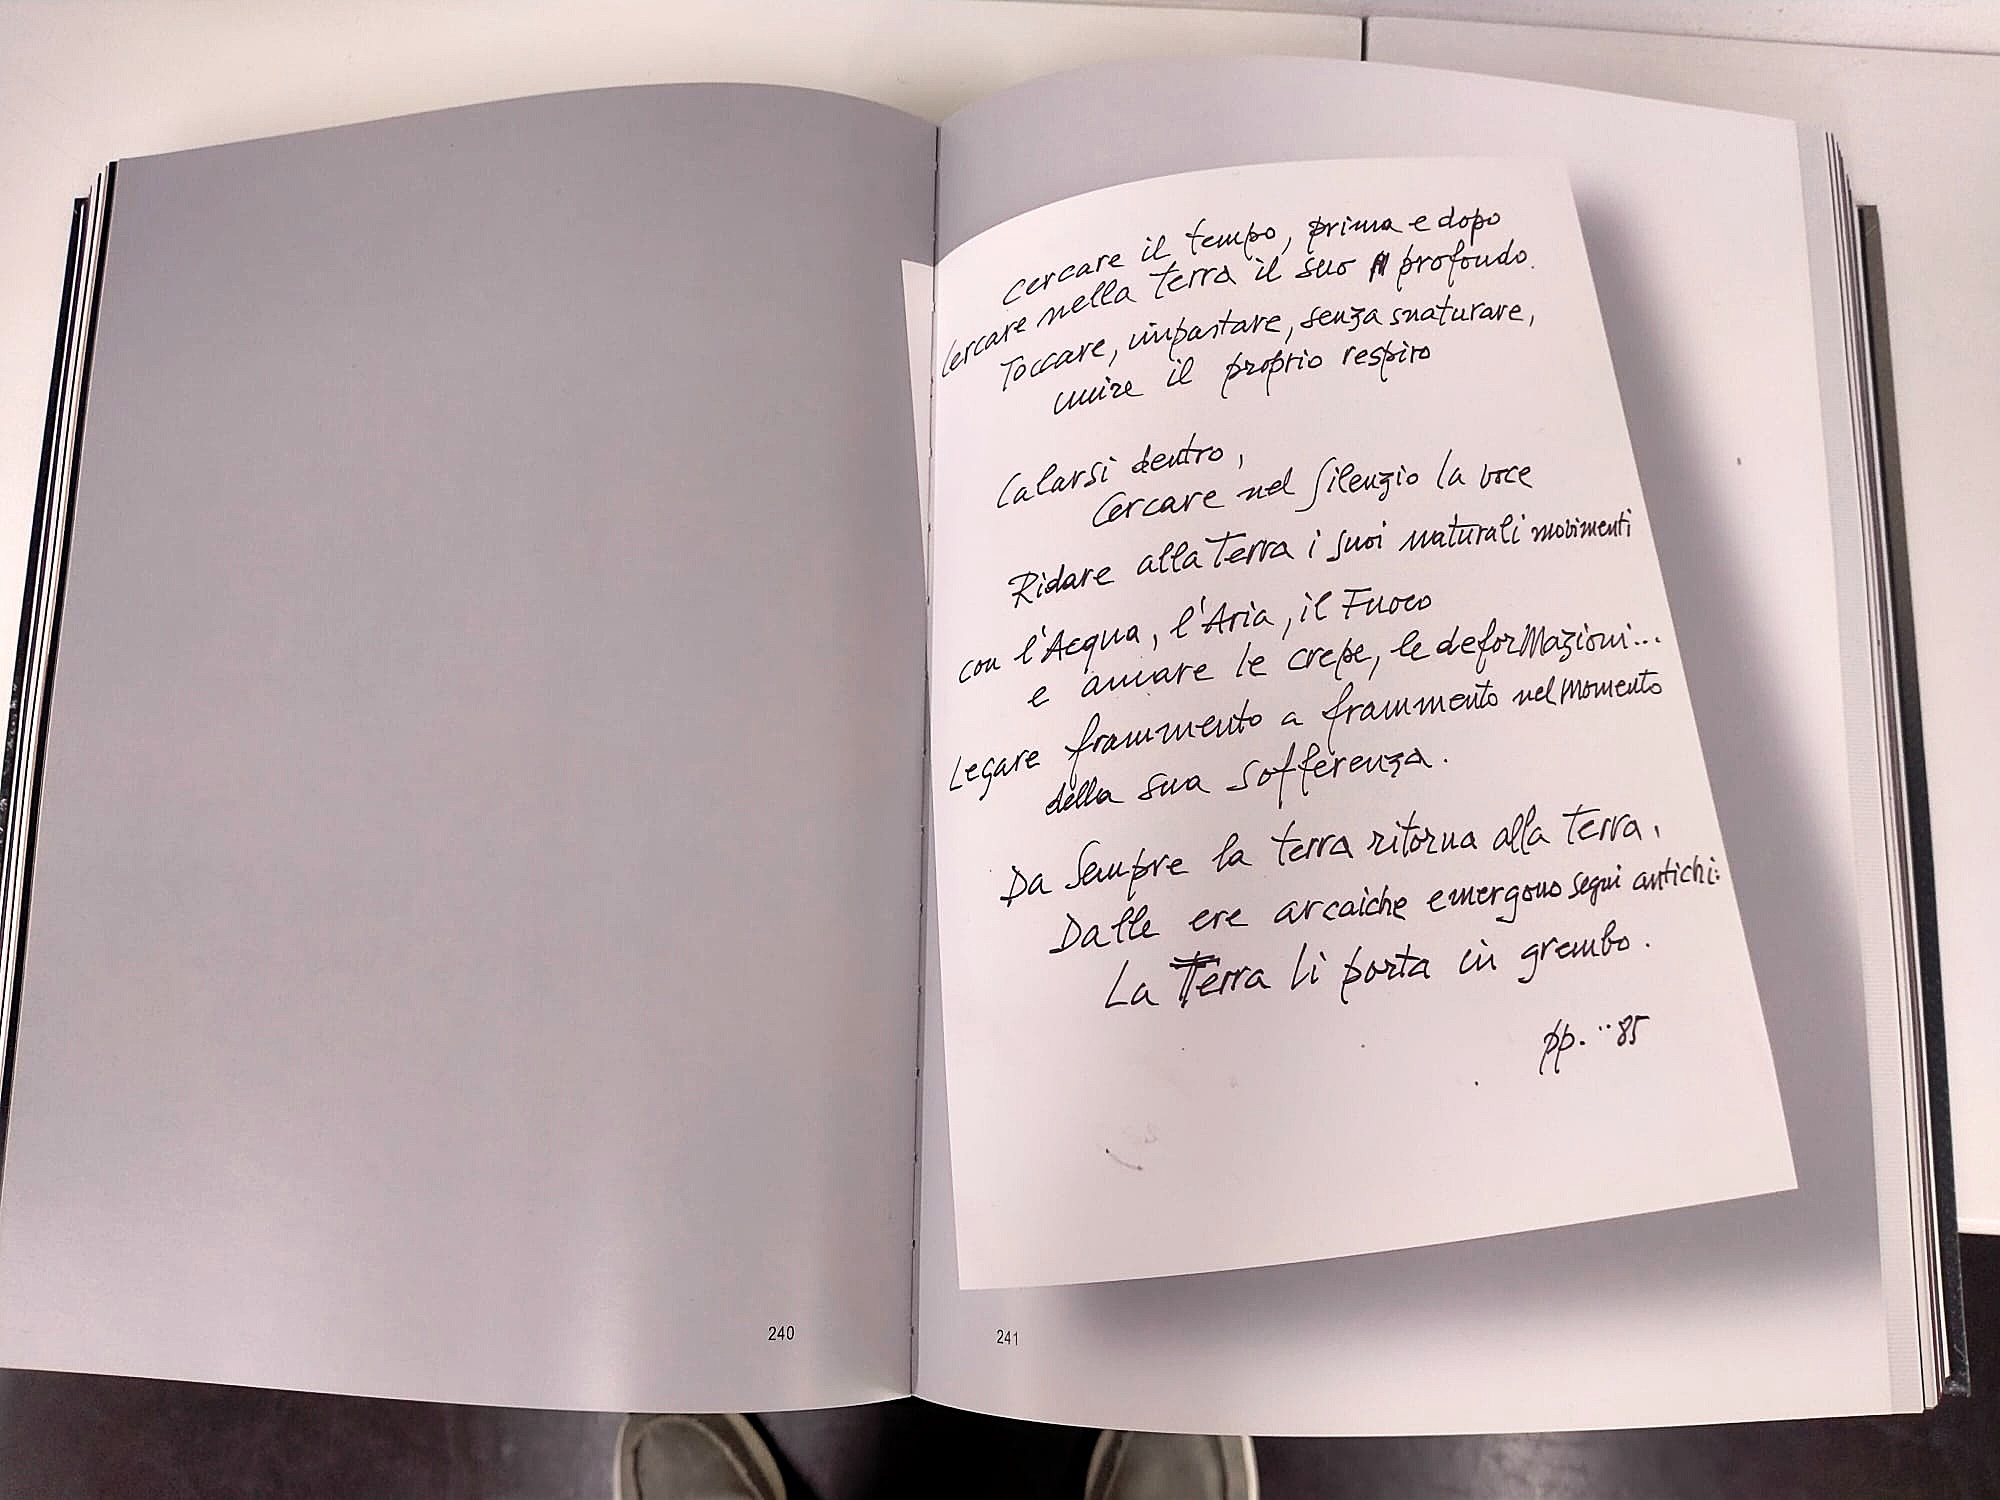 cercare il tempo, prima e dopo
Cercare nella terra il suo profondo.
Toccare, impastare, senza snaturare,
unire il proprio respiro
Calarsi dentro,
Cercare nel silenzio la voce
Ridare alla Terra i suoi naturali movimenti
con l'Acqua, l'Aria, il Fuoco
e amare le crepe, le deforMazioni...
Legare frammento a frammento nel Momento
della sua sofferenza.
Da Sempre la terra ritorna alla terra,
Dalle ere arcaiche emergono segni antichi:
La Terra li porta in grembo.
pp. ..85
240
241